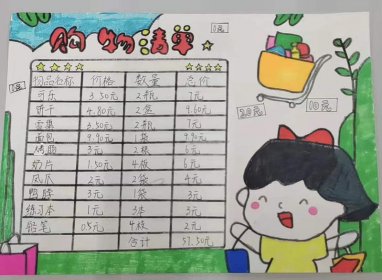 购物清单
物品名称 价格 数量 总价
可乐 3.50元 2瓶 7元
饼干 4.80元 2袋 9.60元
3.50元 2瓶 7元
面包 9.90元 1袋 9.90元
烤肠 3元 2根 6元
奶片 1.50元 4板 6元
瓜瓜 2元 2袋 4元
鸭脖 3元 1袋 3元
练习本 1元 3本 3元
铅笔 0.5元 4枝 2元
合计 57.50元
20元
10元